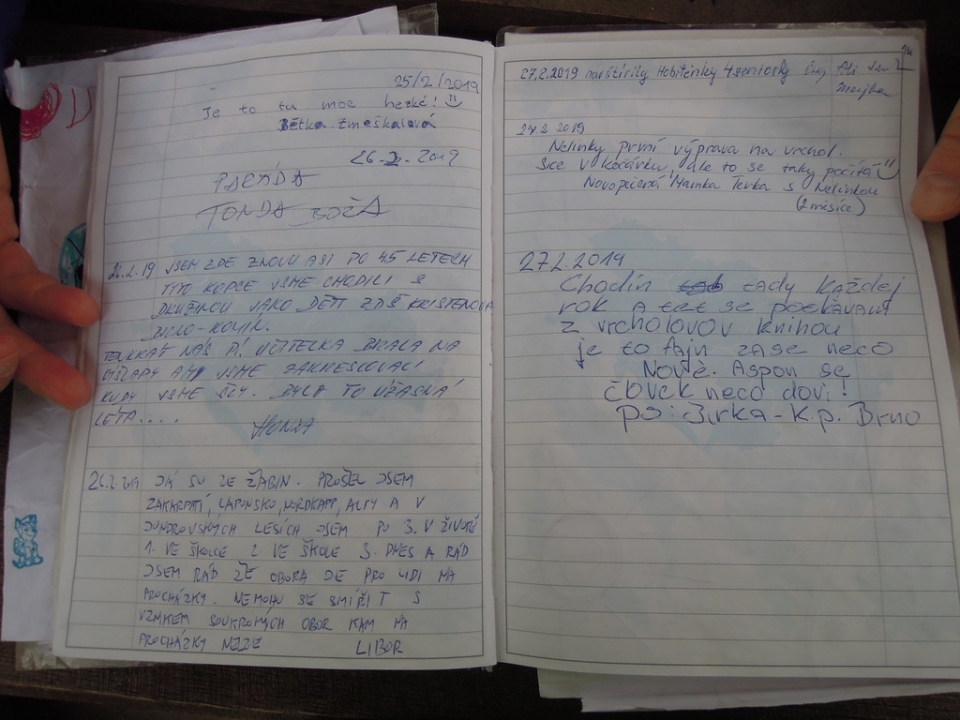 25/2/2019
Je to tu moc hezké!
Bětka Zmeškalová
26.2.2019
PARÁDA
TONDA
26.2.19 JSEM ZDE ZNOVU ASI PO 45 LETECH
TYTO KOPCE JSME CHODILI S
DRUŽINOU JAKO DĚTI ZDŠ KRISTENOVA
BRNO-KOMÍN.
TENKRÁT NÁS P. UČITELKA BRALA NA
VÍŠLAPY A MY JSME ZAKRESLOVALI
KUDY JSME ŠLY. BYLA TO ÚŽASNÁ
LÉTA....
HONZA
26.2.2019 JÁ SU ZE ŽABIN. PROŠEL JSEM
ZAKARPATÍ, LAPONSKO, NORDKAPP, ALPY A V
JUNDROVSKÝCH LESÍCH JSEM PO 3. V ŽIVOTĚ
1. VE ŠKOLCE 2. VE ŠKOLE 3. DNES A RÁD
JSEM RÁD ŽE OBORA JE PRO LIDI NA
PROCHÁZKY. NEMOHU SE SMÍŘIT S
VZNIKEM SOUKROMÝCH OBOR KAM NA
PROCHÁZKY NELZE LIBOR
27.2.2019 navštívily Hobitěnky 4 seniorky
27.2.2019
Nelinky první výprava na vrchol.
Sice v kočárku, ale to se taky počítá
Novopečená Mamka Terka s Nelinkou
(2 měsíce)
27.2.2019
Chodin tady každej
rok a teť se potkávam
z vrcholovov knihou
je to fajn zase neco
Nové. Aspon se
človek neco doví!
po: Jirka - K.p. Brno